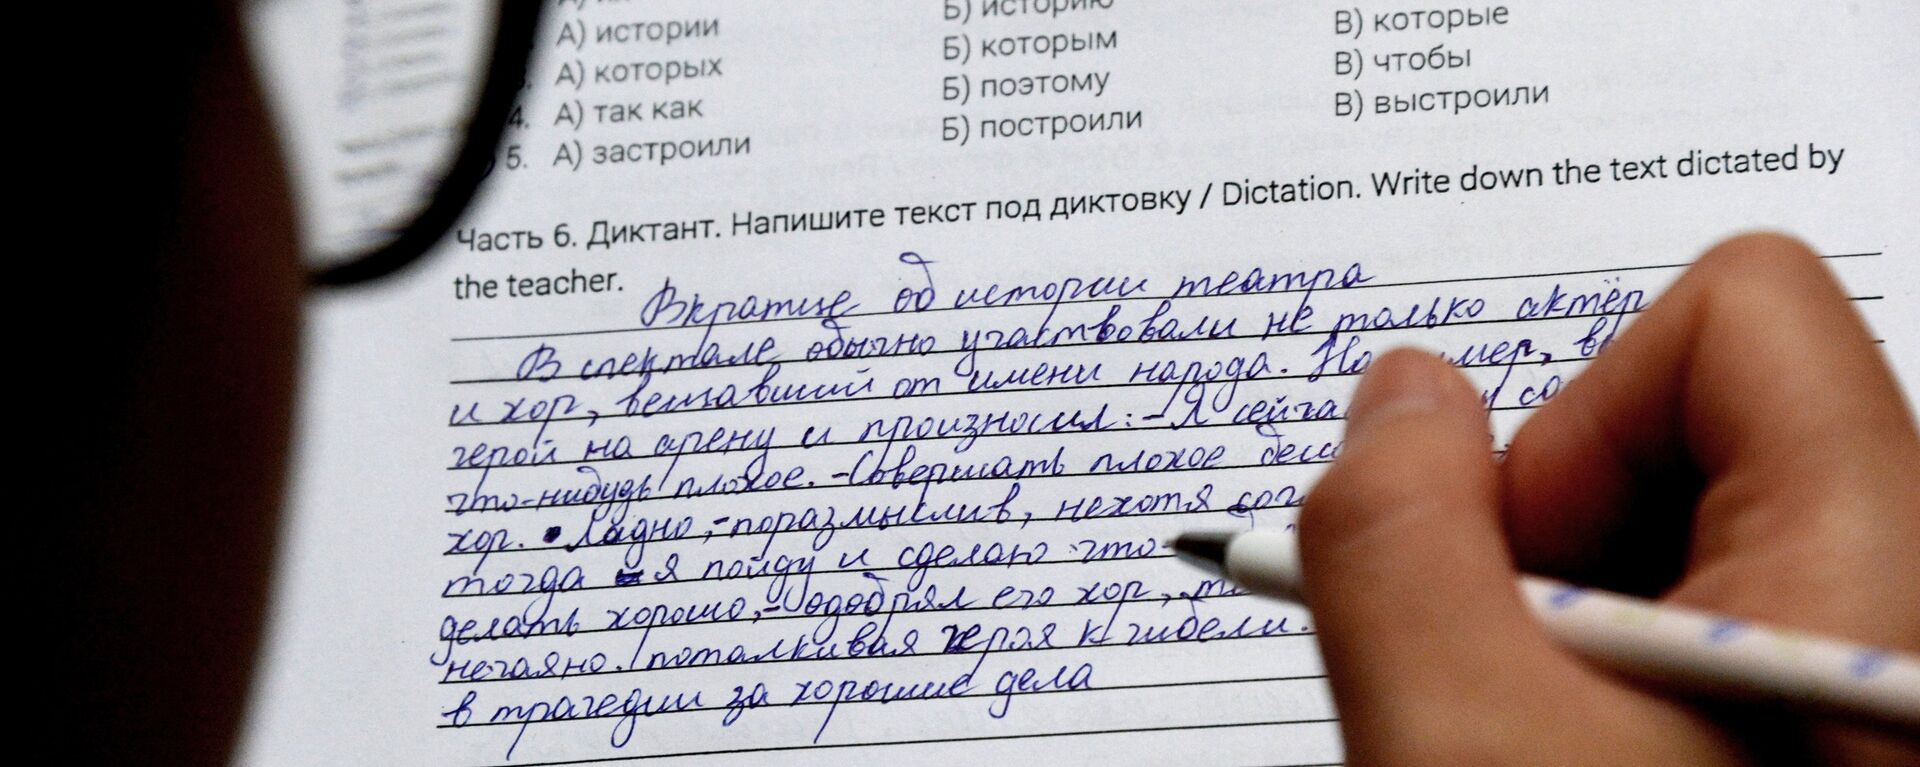 А) истории Б) историю В) которые
А) которых Б) которым В) чтобы
4. А) так как Б) поэтому В) выстроили
5. А) застроили Б) построили
Часть 6. Диктант. Напишите текст под диктовку / Dictation. Write down the text dictated by
the teacher.
Вкратце об истории театра
В спектале обычно участвовали не только актёр
и хор, вещавший от имени народа.
герой на арену и произносил: - Я сейча
что-нибудь плохое. - Совершать плохое
хор. Ладно, - поразмыслив, нехотя
тогда я пойду и сделаю что-
делать хорошо, - одобрял его хор,
нечаяно. поталкивая героя к гибели.
в трагедии за хорошие дела